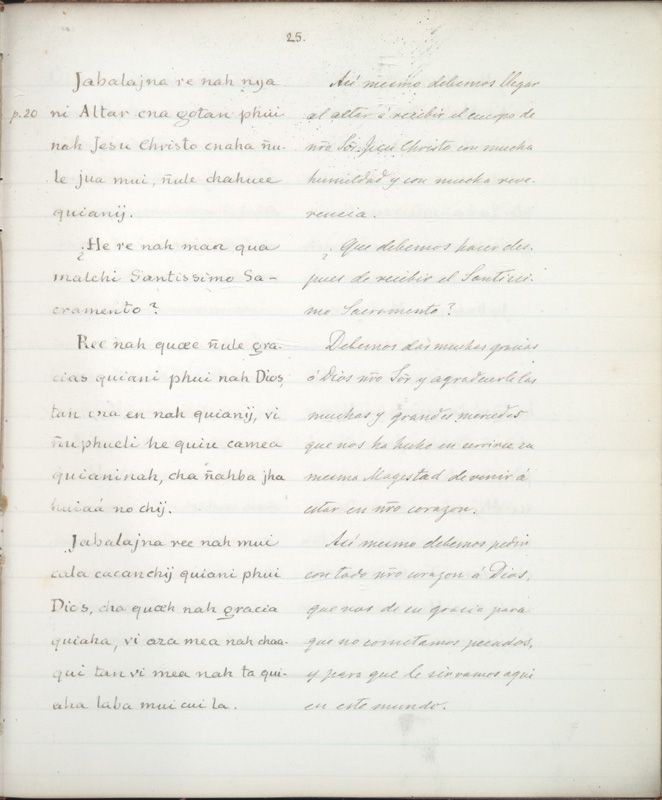 25.
Jabalajna re nah nya
p.20 ni Altar cna gotan phui
nah Jesu Christo cnaha ñu-
le jua mui, ñule chahuee
quianij.
¿He re nah man qua
malchi Santissimo Sa-
cramento?
Ree nah quæe ñule gra-
cias quiani phui nah Dios,
tan cna en nah quianij, vi
ñu phueli he quiu camea
quianinah, cha ñahba jha
huiaá no chij.
Jabalajna ree nah mui
cala cacanchij quiani phui
Dios, cha quæh nah gracia
quiaha, vi aza mea nah chaa-
qui tan vi mea nah ta qui-
aha laba mui cui la.
Asi mesmo debemos llegar
al altar á recibir el cuerpo de
nr̃o Sõr. Jesu Christo con mucha
humildad y con mucha reve-
rencia.
¿Que debemos hacer des-
pues de recibir el Santissi-
mo Sacramento?
Debemos dar muchas gracias
á Dios nr̃o Sõr y agradecerle las
muchas y grandes mercedes
que nos ha hecho en servirse su
mesma Magestad de venir á
estar en nr̃o corazon.
Asi mesmo debemos pedir
con todo nr̃o corazon á Dios,
que nos de su gracia para
que no cometamos pecados,
y para que le sirvamos aqui
en este mundo.